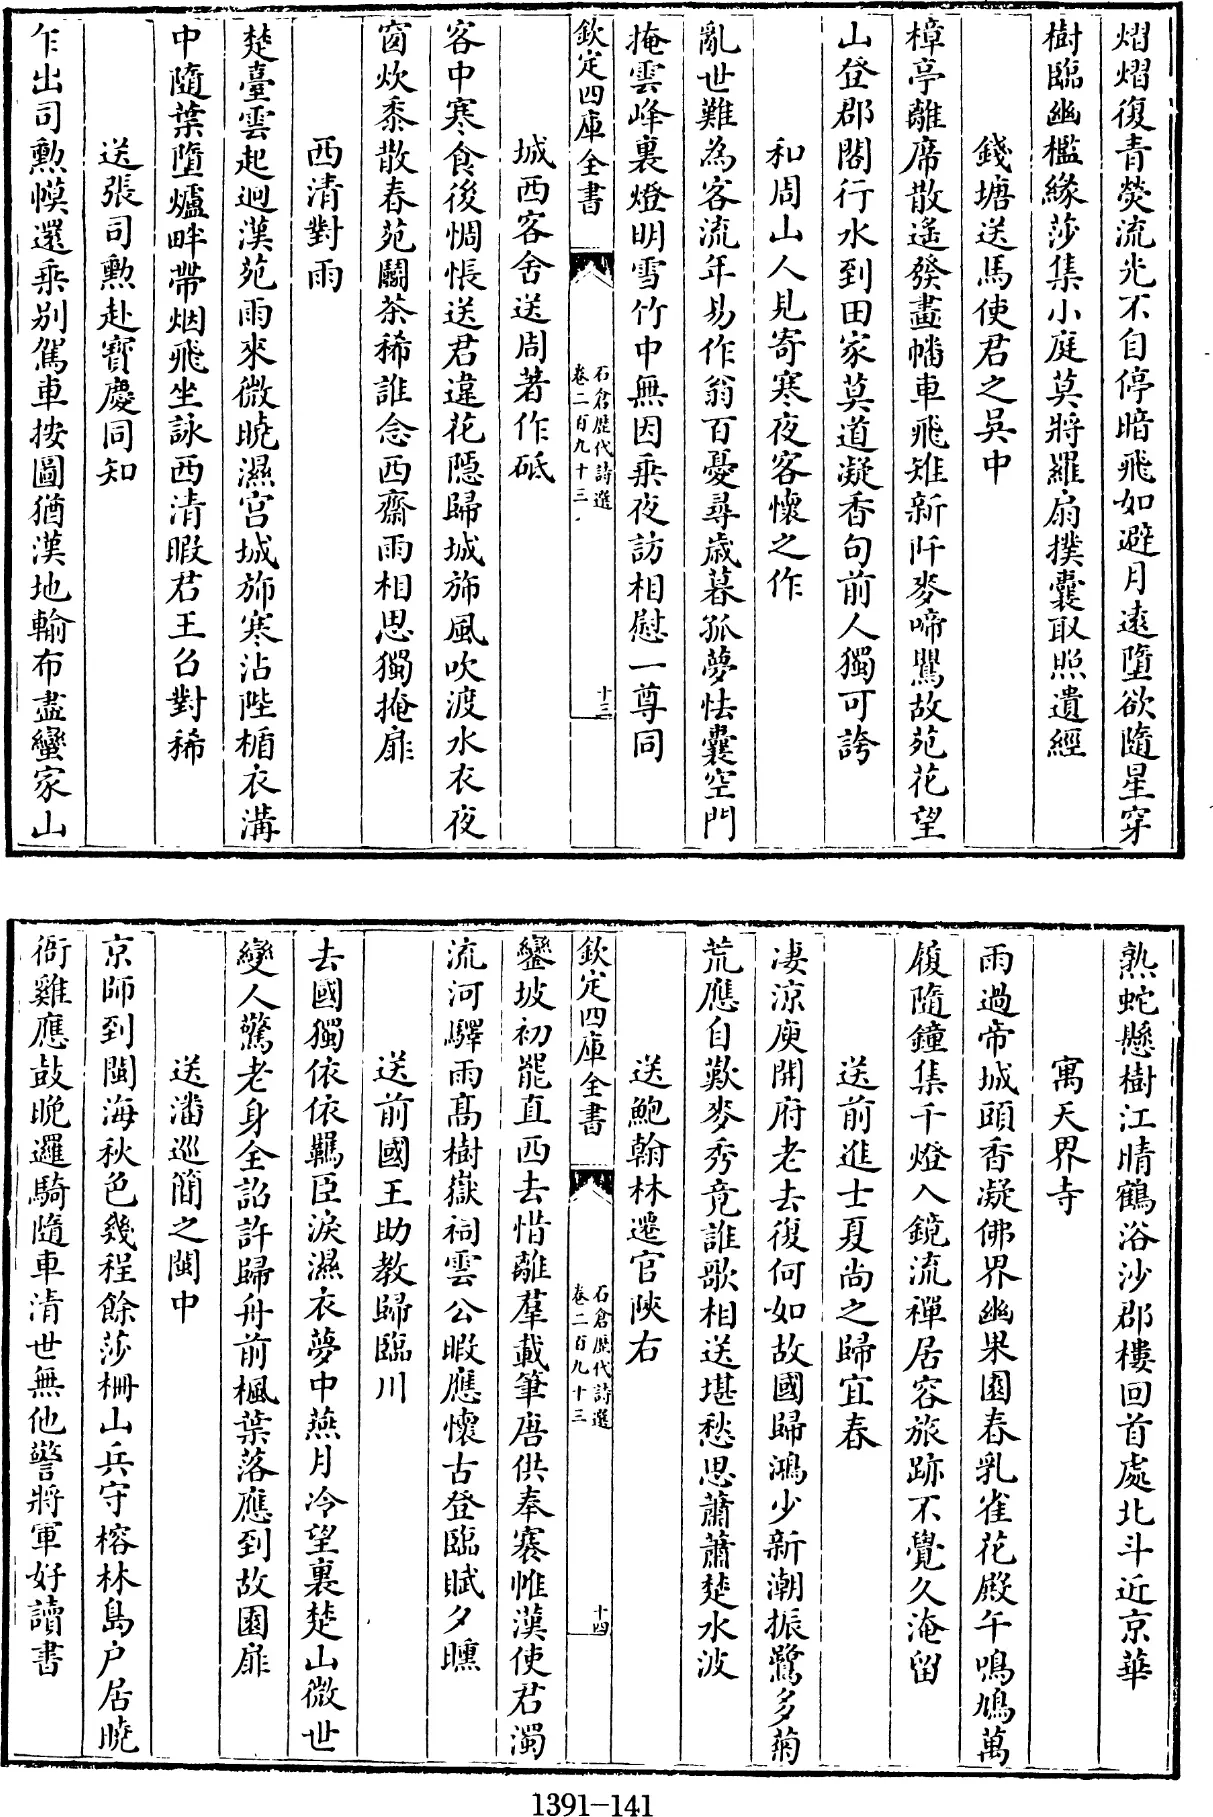 熠熠復青熒流光不自停暗飛如避月遠墮欲隨星穿
樹臨幽檻緣莎集小庭莫將羅扇撲囊取照遺經
錢塘送馬使君之吳中
樟亭離席散遙發畫幡車飛雉新阡麥啼鶯故苑花望
山登郡閣行水到田家莫道凝香句前人獨可誇
和周山人見寄寒夜客懷之作
亂世難為客流年易作翁百憂尋歲暮孤夢怯囊空門
掩雲峰裏燈明雪竹中無因乘夜訪相慰一尊同
欽定四庫全書
石倉歴代詩選
卷二百九十三
十三
城西客舍送周著作砥
客中寒食後惆悵送君違花隠歸城斾風吹渡水衣夜
窗炊黍散春苑鬬茶稀誰念西齋雨相思獨掩扉
西清對雨
楚臺雲起迥漢苑雨來微曉濕宮城斾寒沾陛楯衣溝
中隨葉墮爐畔帶烟飛坐詠西清暇君王召對稀
送張司勲赴寶慶同知
乍出司勲幙還乘别駕車按圖猶漢地輸布盡蠻家山
熟蛇懸樹江晴鶴浴沙郡樓回首處北斗近京華
寓天界寺
雨過帝城頭香凝佛界幽果園春乳雀花殿午鳴鳩萬
履隨鐘集千燈入鏡流禪居容旅跡不覺久淹留
送前進士夏尚之歸宜春
凄涼庾開府老去復何如故國歸鴻少新潮振鷺多菊
荒應自歎麥秀竟誰歌相送堪愁思蕭蕭楚水波
送鮑翰林遷官陜右
欽定四庫全書
石倉歴代詩選
卷二百九十三
十四
鑾坡初罷直西去惜離羣載筆唐供奉褰帷漢使君濁
流河驛雨髙樹嶽祠雲公暇應懷古登臨賦夕曛
送前國王助教歸臨川
去國獨依依羈臣淚濕衣夢中燕月冷望裏楚山微世
變人驚老身全詔許歸舟前楓葉落應到故園扉
送潘巡簡之閩中
京師到閩海秋色幾程餘莎柵山兵守榕林島户居曉
衙雞應鼓晚邏騎隨車清世無他警將軍好讀書
1391-141